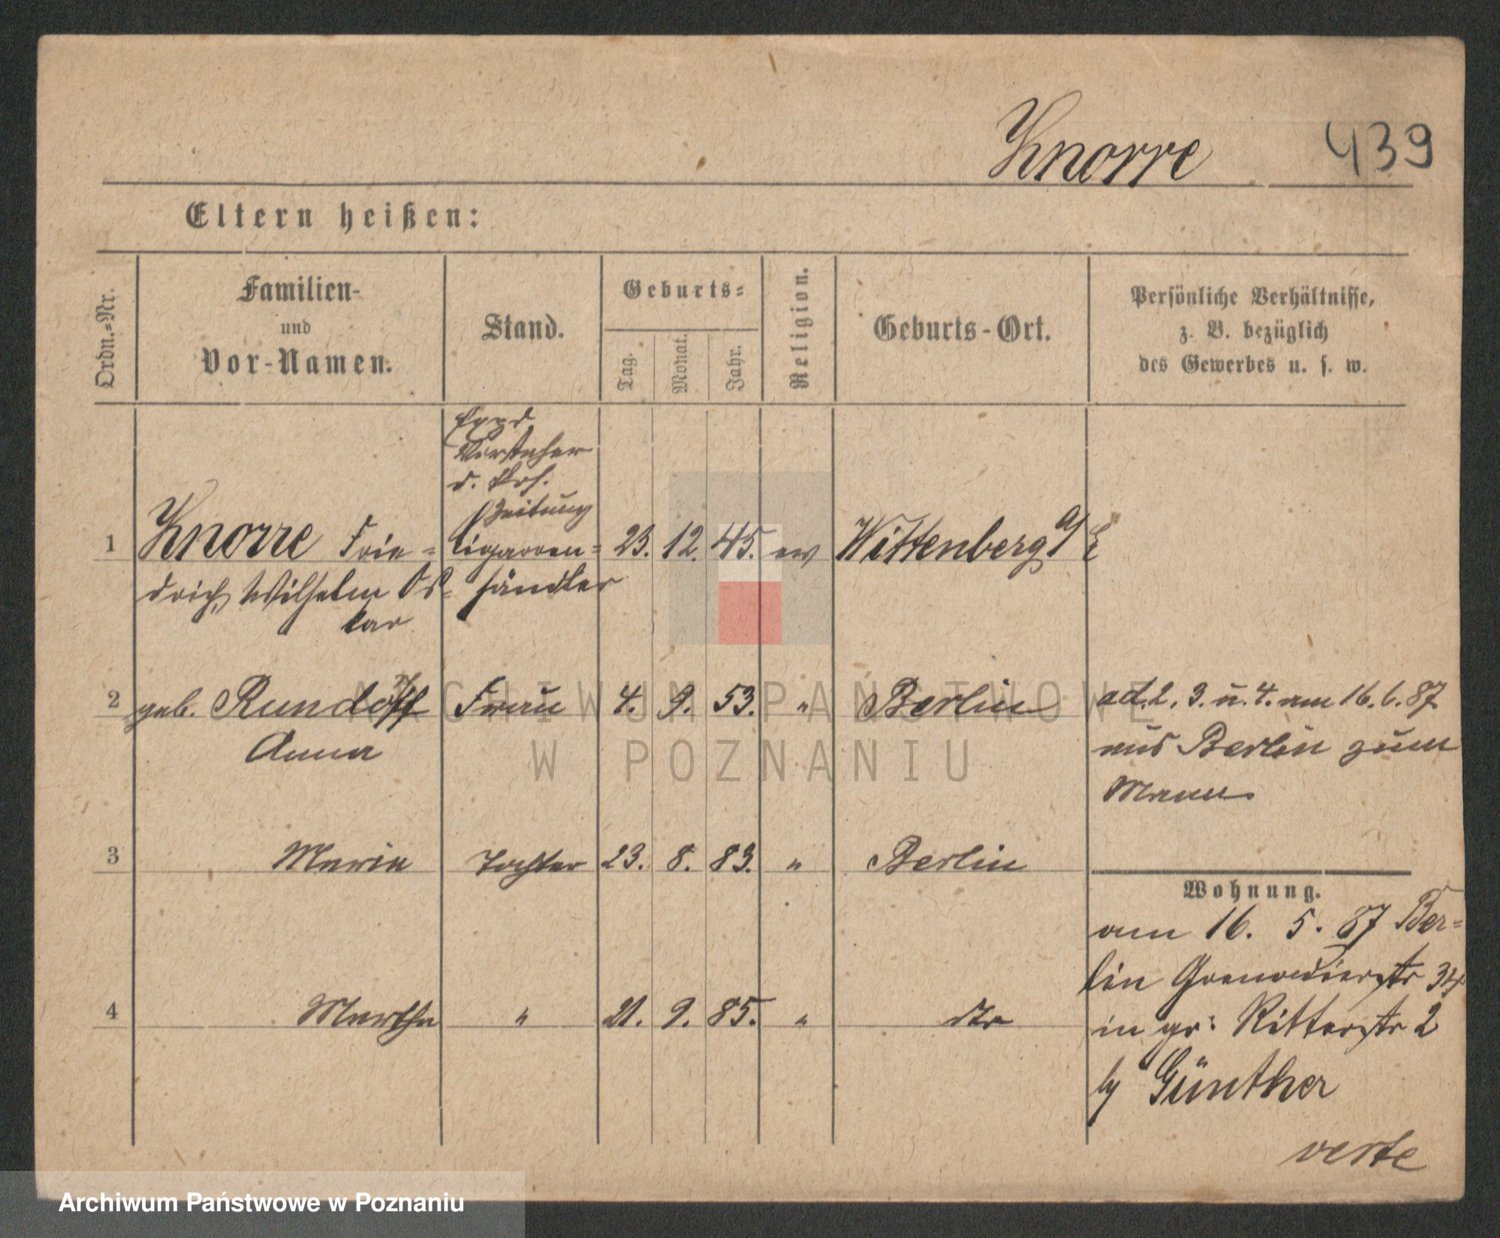 Knorre 439
Eltern heißen:
Ordn.-Nr.
Familien-
und
Vor-Namen.
Stand.
Geburts-
Tag.
Monat.
Jahr.
Religion.
Geburts-Ort.
Persönliche Verhältnisse,
z. B. bezüglich
des Gewerbes u. s. w.
Exped.
Vorsteher
d. Pos.
Zeitung
1 Knorre Frie- Cigarren- 23. 12. 45. ev Wittenberg a/E
drich Wilhelm Os- händler
kar
2 geb. Rundorff Frau 4. 9. 53. " Berlin ad. 2, 3. u. 4. am 16.6.87
Anna aus Berlin zum
Mann.
3 Marie Tochter 23. 8. 83. " Berlin
Wohnung.
am 16. 5. 87 Ber-
lin Grenadierstr 34
4 Martha " 21. 9. 85. " dto in gr: Ritterstr 2
by Günther
verte
ARCHIWUM PAŃSTWOWE
W POZNANIU
Archiwum Państwowe w Poznaniu